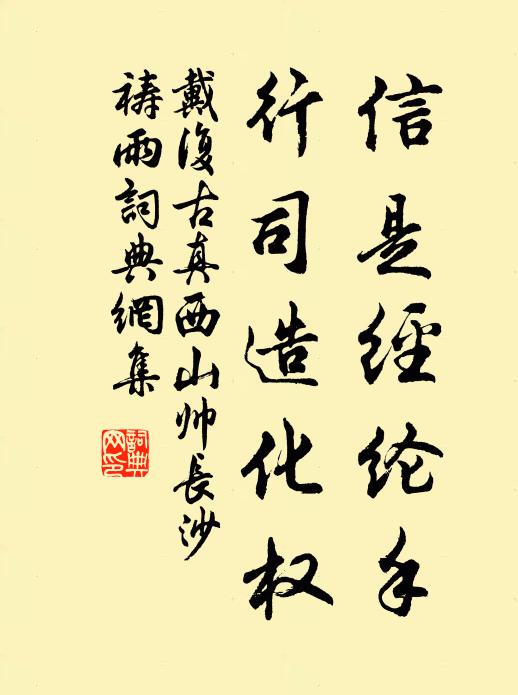 信是經纶手
行司造化权
戴復古真西山帅長沙
祷雨詞典網集
詞典网印